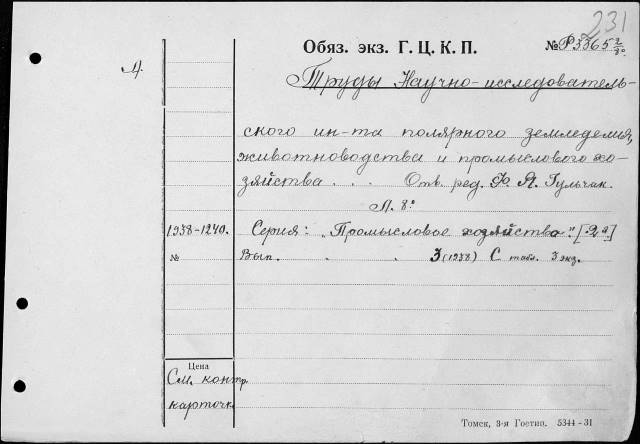 231
Обяз. экз. Г. Ц. К. П. № Р3365 2/8°
Труды Научно-исследователь-
ского ин-та полярного земледелия,
животноводства и промыслового хо-
зяйства . . . Отв. ред. Ф. Я. Гульчак.
Л. 8°
1938-1940. Серия: „Промысловое хозяйство." [2°]
№ Вып. . . 3 (1938) С табл. 3 экз.
Цена
См. контр.
карточк.
Томск, 3-я Гостип. 5344 - 31